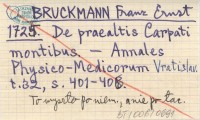 BRUCKMANN Franz Ernst
1725. De praealtis Carpati
montibus. — Annales
Physico-Medicorum Vratislav.
t. 32, s. 401-408.
To wyparto po niem, a nie po łac.